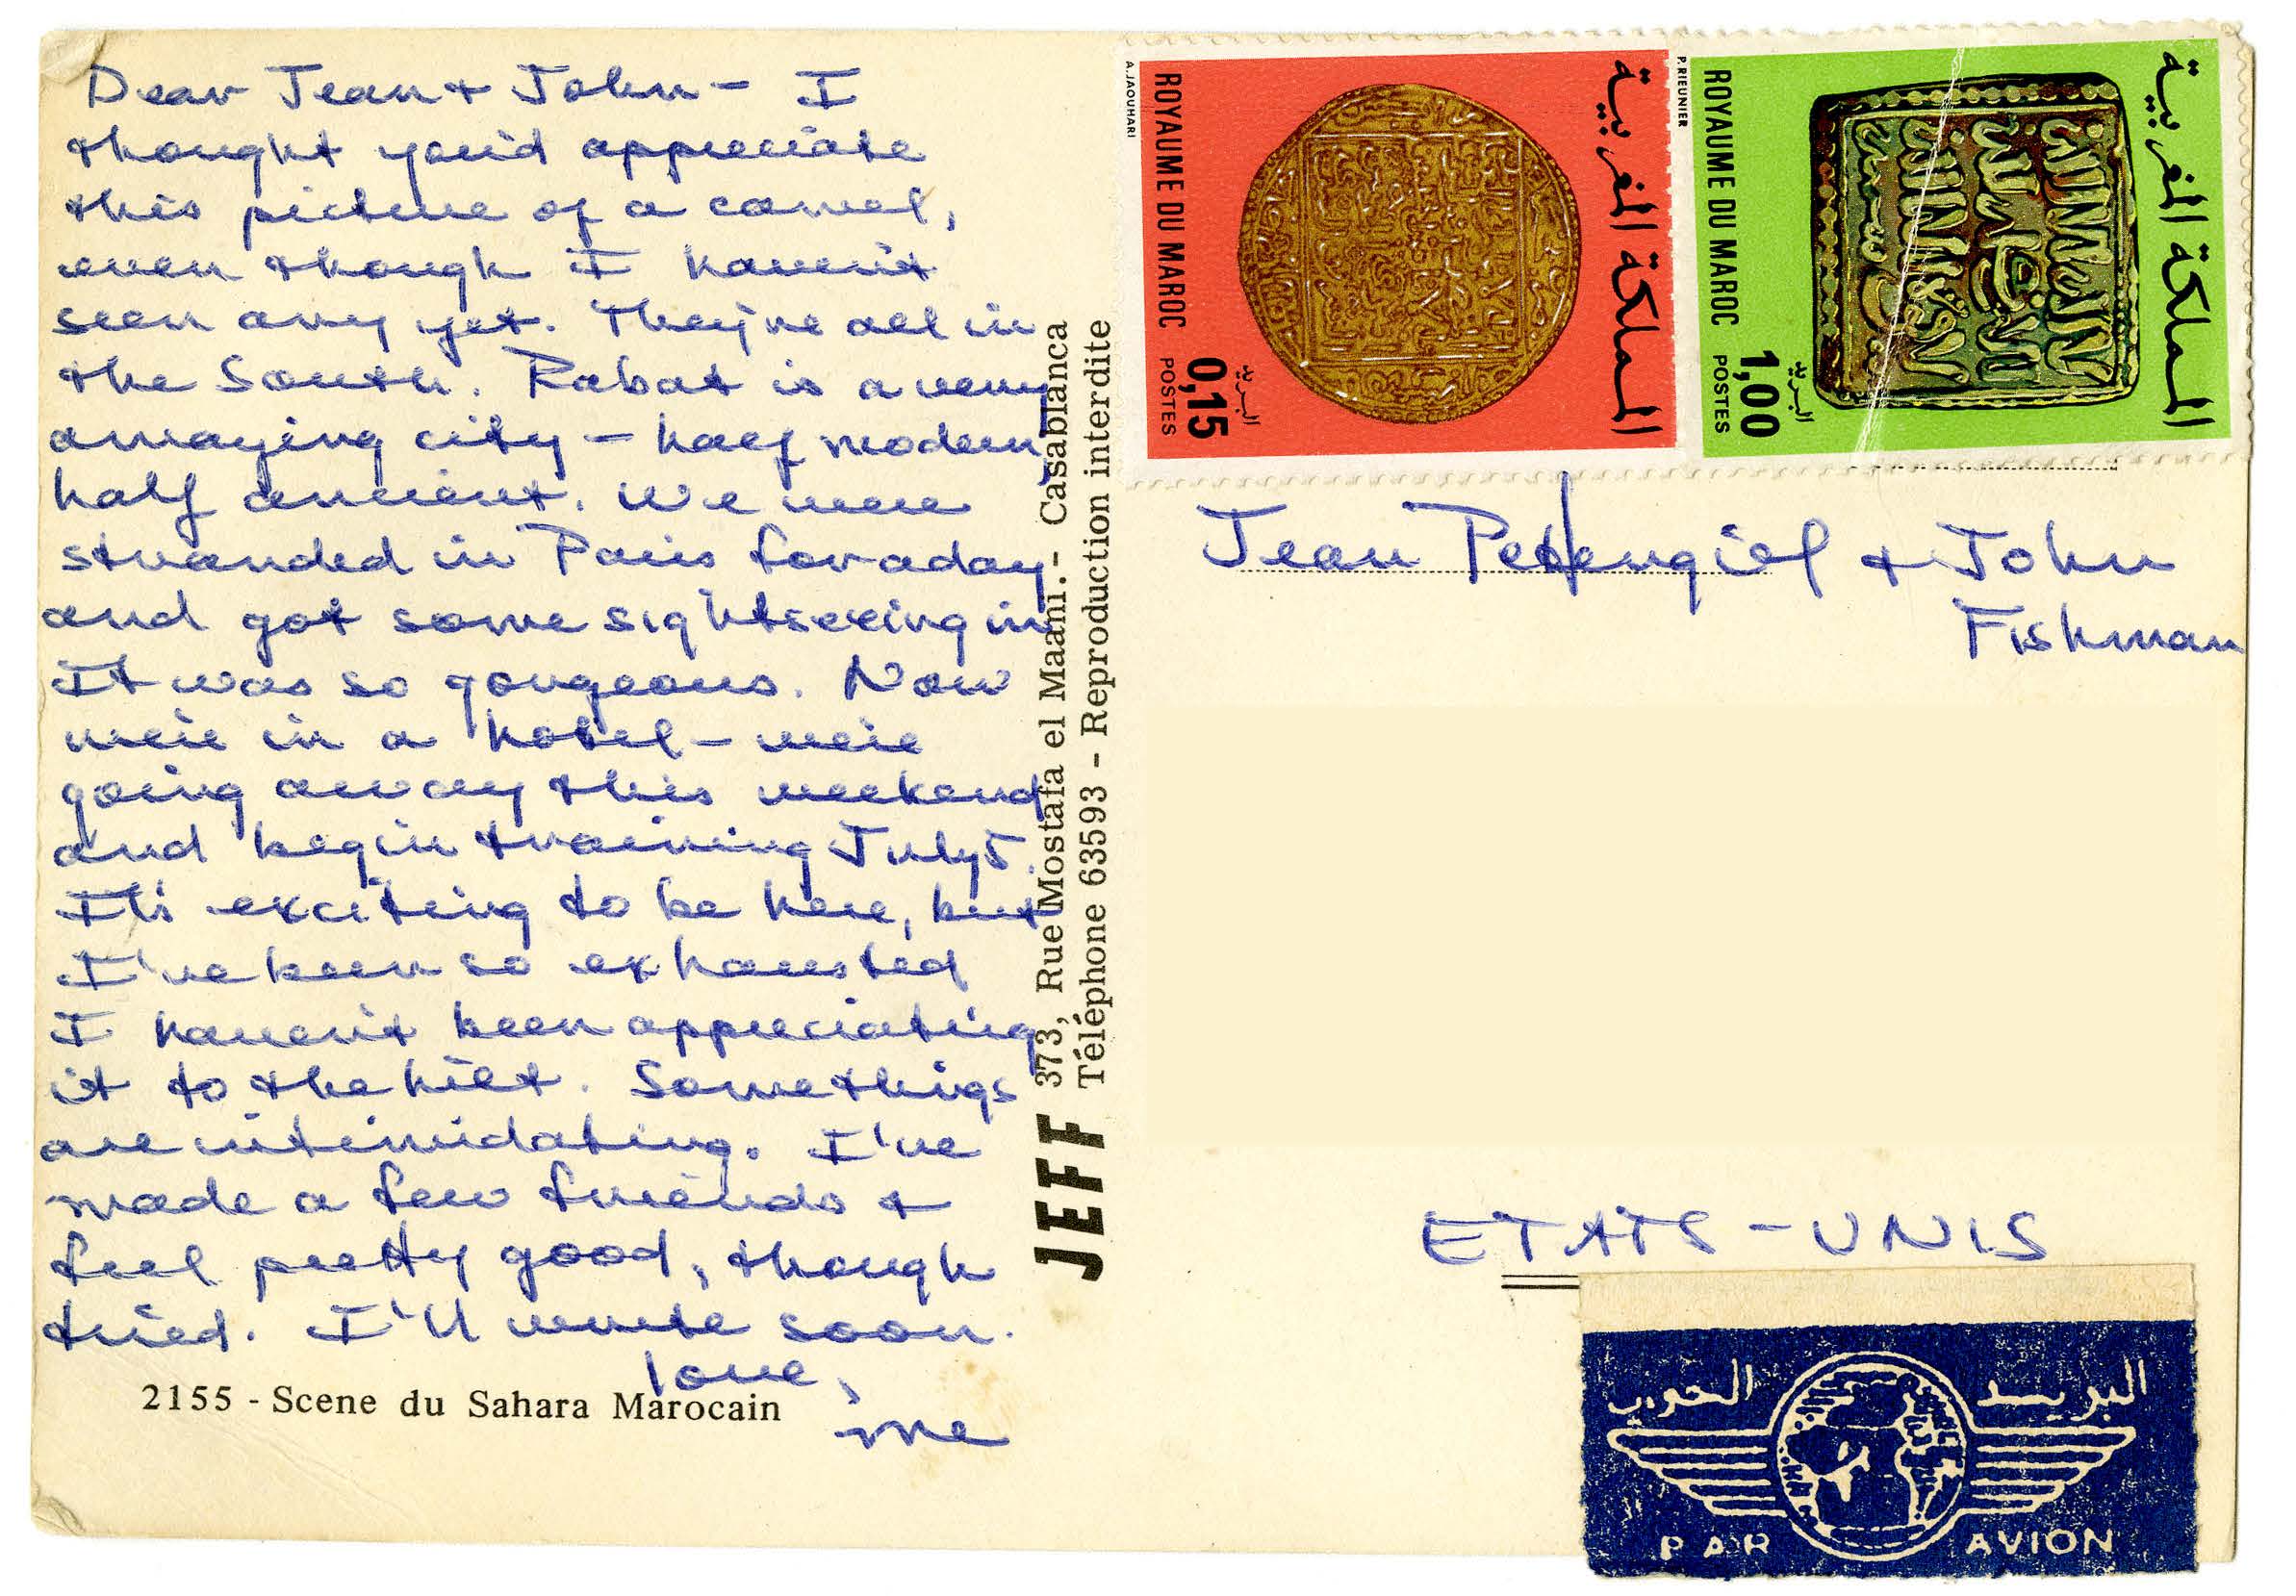 Dear Jean + John - I
thought you'd appreciate
this picture of a camel,
even though I haven't
seen any yet. They're all in
the South. Rabat is a very
amazing city - half modern,
half ancient. We were
stranded in Paris for a day
and got some sightseeing in
It was so gorgeous. Now
we're in a hotel - we're
going away this weekend
and begin training July 5.
It's exciting to be here, but
I've been so exhausted
I haven't been appreciating
it to the hilt. Some things
are intimidating. I've
made a few friends +
feel pretty good, though
tried. I'll write soon.
love,
me
2155 - Scene du Sahara Marocain
JEFF 373, Rue Mostafa el Maani. - Casablanca
Téléphone 63593 - Reproduction interdite
A. JAOUHARI
ROYAUME DU MAROC
POSTES
0,15
البريد
المملكة المغربية
P. RIEUNIER
ROYAUME DU MAROC
POSTES
1,00
البريد
المملكة المغربية
Jean + John
Fishman
ETATS - UNIS
البريد الجوي
PAR AVION